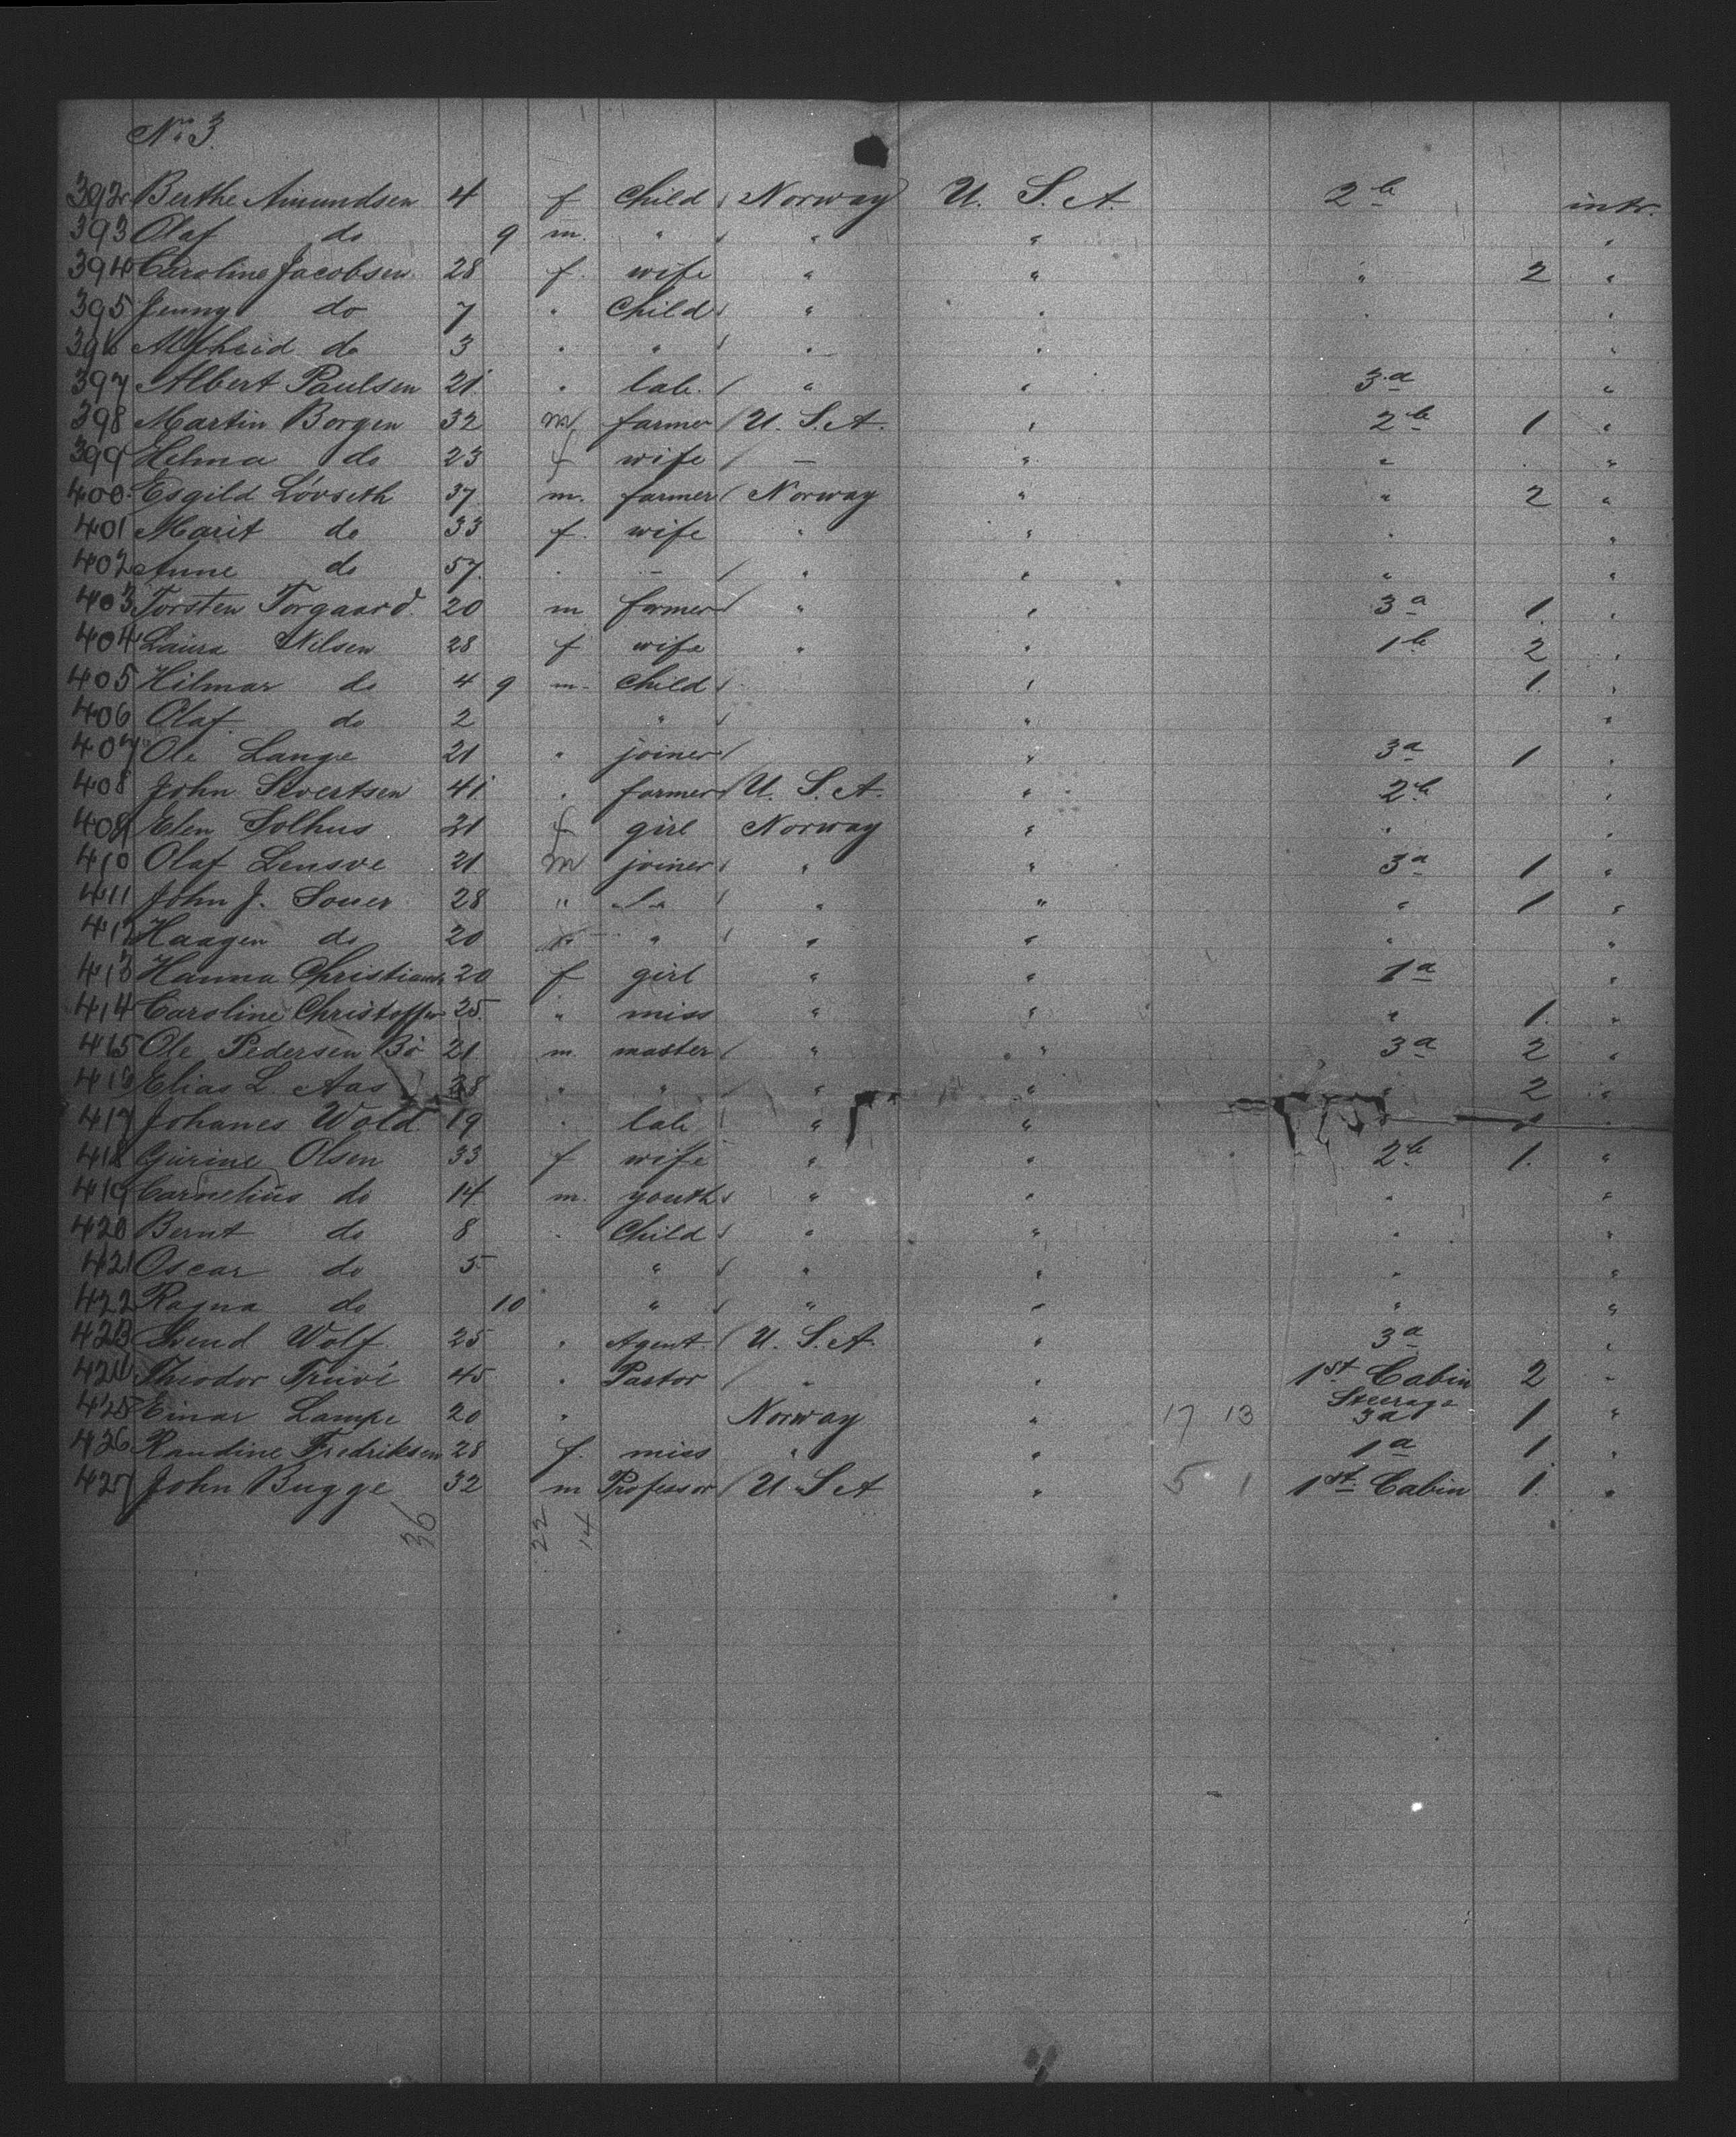 No 3.
392 Berthe Amundsen 4 f child Norway U. S. A. 2b intr.
393 Olaf do 9 m. " " " "
394 Caroline Jacobsen 28 f. wife " " " 2 "
395 Jenny do 7 " Child " " " "
396 Alfheid do 3 " " " " "
397 Albert Paulsen 21 " lab. " " 3a "
398 Martin Borgen 32 m farmer U. S. A. " 2b 1 "
399 Helma do 23 f wife — " " "
400 Esgild Lövseth 37 m. farmer Norway " " 2 "
401 Marit do 33 f. wife " " " "
402 Anne do 57. " – " " " "
403 Torsten Torgaard. 20 m farmer " " 3a 1. "
404 Laura Nilsen 28 f wife " " 1b 2 "
405 Hilmar do 4 9 m. Child " 1. "
406 Olaf do 2 " " "
407 Ole Lange 21 " joiner " 3a 1 "
408 John Sivertsen 41 " farmer U. S. A. " 2b "
409 Elen Solhus 21 f girl Norway " " "
410 Olaf Lensve 21 m joiner " " 3a 1 "
411 John J. Soner 28 " do " " " 1 "
412 Haagen do 20 " " " " " "
413 Hanna Christians 20 f girl " " 1a "
414 Caroline Christoffer 25. " miss " " " 1. "
415 Ole Pedersen Bö 21 m. master " " 3a 2 "
416 Elias L. Aas 28 " " " " " 2 "
417 Johanes Wold 19 " lab " " " "
418 Gurine Olsen 33 f wife " " 2b 1. "
419 Carnelius do 14 m. youth " " " "
420 Bernt do 8 " Child " " " "
421 Oscar do 5 " " " " "
422 Ragna do 10 " " " " "
423 Svend Wolf 25 " Agent. U. S. A. " 3a "
424 Theodor 45 " Pastor " " 1st Cabin 2 "
425 Einar Lampe 20 " Norway " 17 13 Steerage 3a 1 "
426 Randine Fredriksen 28 f. miss " " 1a 1. "
427 John Bugge 32 m Professor U. S A " 5 1 1st. Cabin 1. "
36 22 14